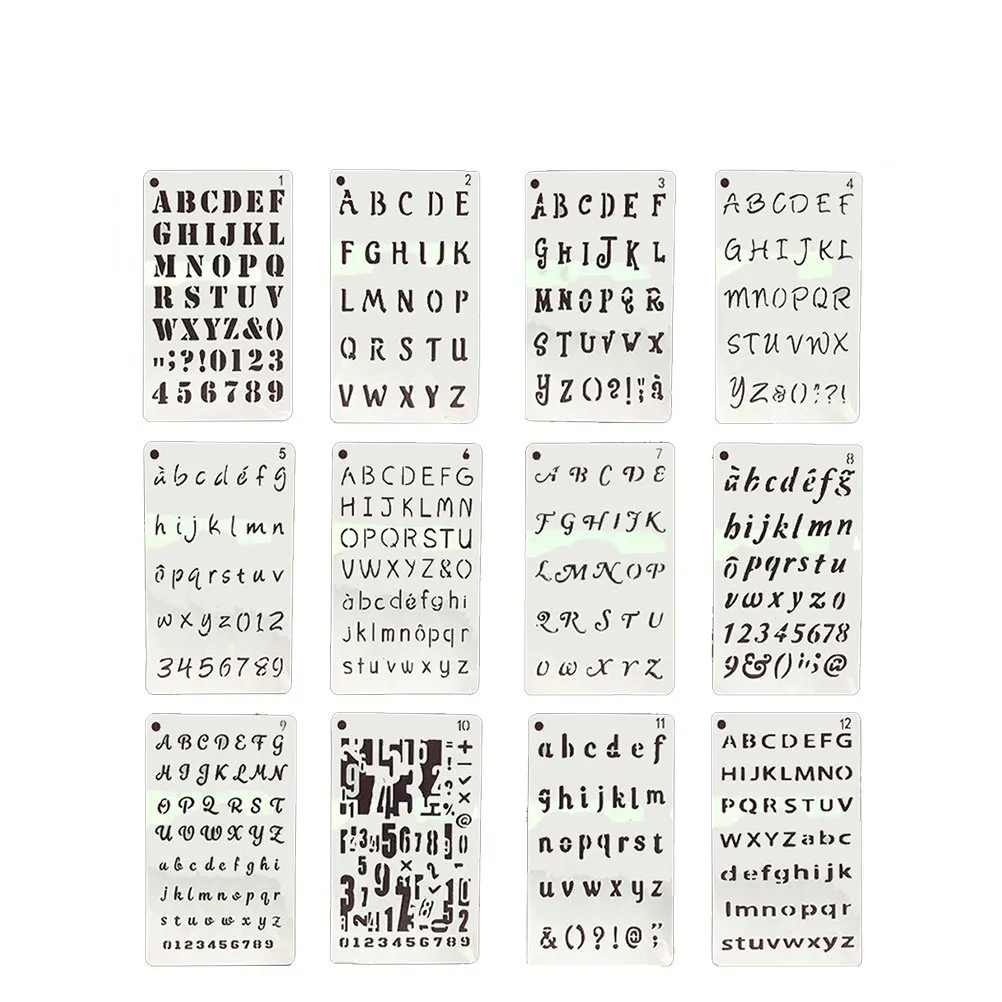 1
ABCDEF
GHIJKL
MNOPQ
RSTUV
WXYZ&()
";?!0123
456789
2
ABCDE
FGHIJK
LMNOP
QRSTU
VWXYZ
3
ABCDEF
GHIJKL
MNOPQR
STUVWX
YZ()?!;à
4
ABCDEF
GHIJKL
MNOPQR
STUVWX
YZ&();?!
5
àbcdéfg
hijklmn
ôpqrstuv
wxyz012
3456789
6
ABCDEFG
HIJKLMN
OPQRSTU
VWXYZ&()
àbcdéfghi
jklmnôpqr
stuvwxyz
7
ABCDE
FGHIJK
LMNOP
QRSTU
VWXYZ
8
àbcdéfg
hijklmn
ôpqrstu
vwxyz0
12345678
9&()";@
9
ABCDEFG
HIJKLMN
OPQRST
UVWXYZ
abcdefghi
jklmnopqr
stuvwxyz
0123456789
10
45678
0123456789
11
abcdef
ghijklm
nopqrst
uvwxyz
&()?!@";
12
ABCDEFG
HIJKLMNO
PQRSTUV
WXYZabc
defghijk
lmnopqr
stuvwxyz